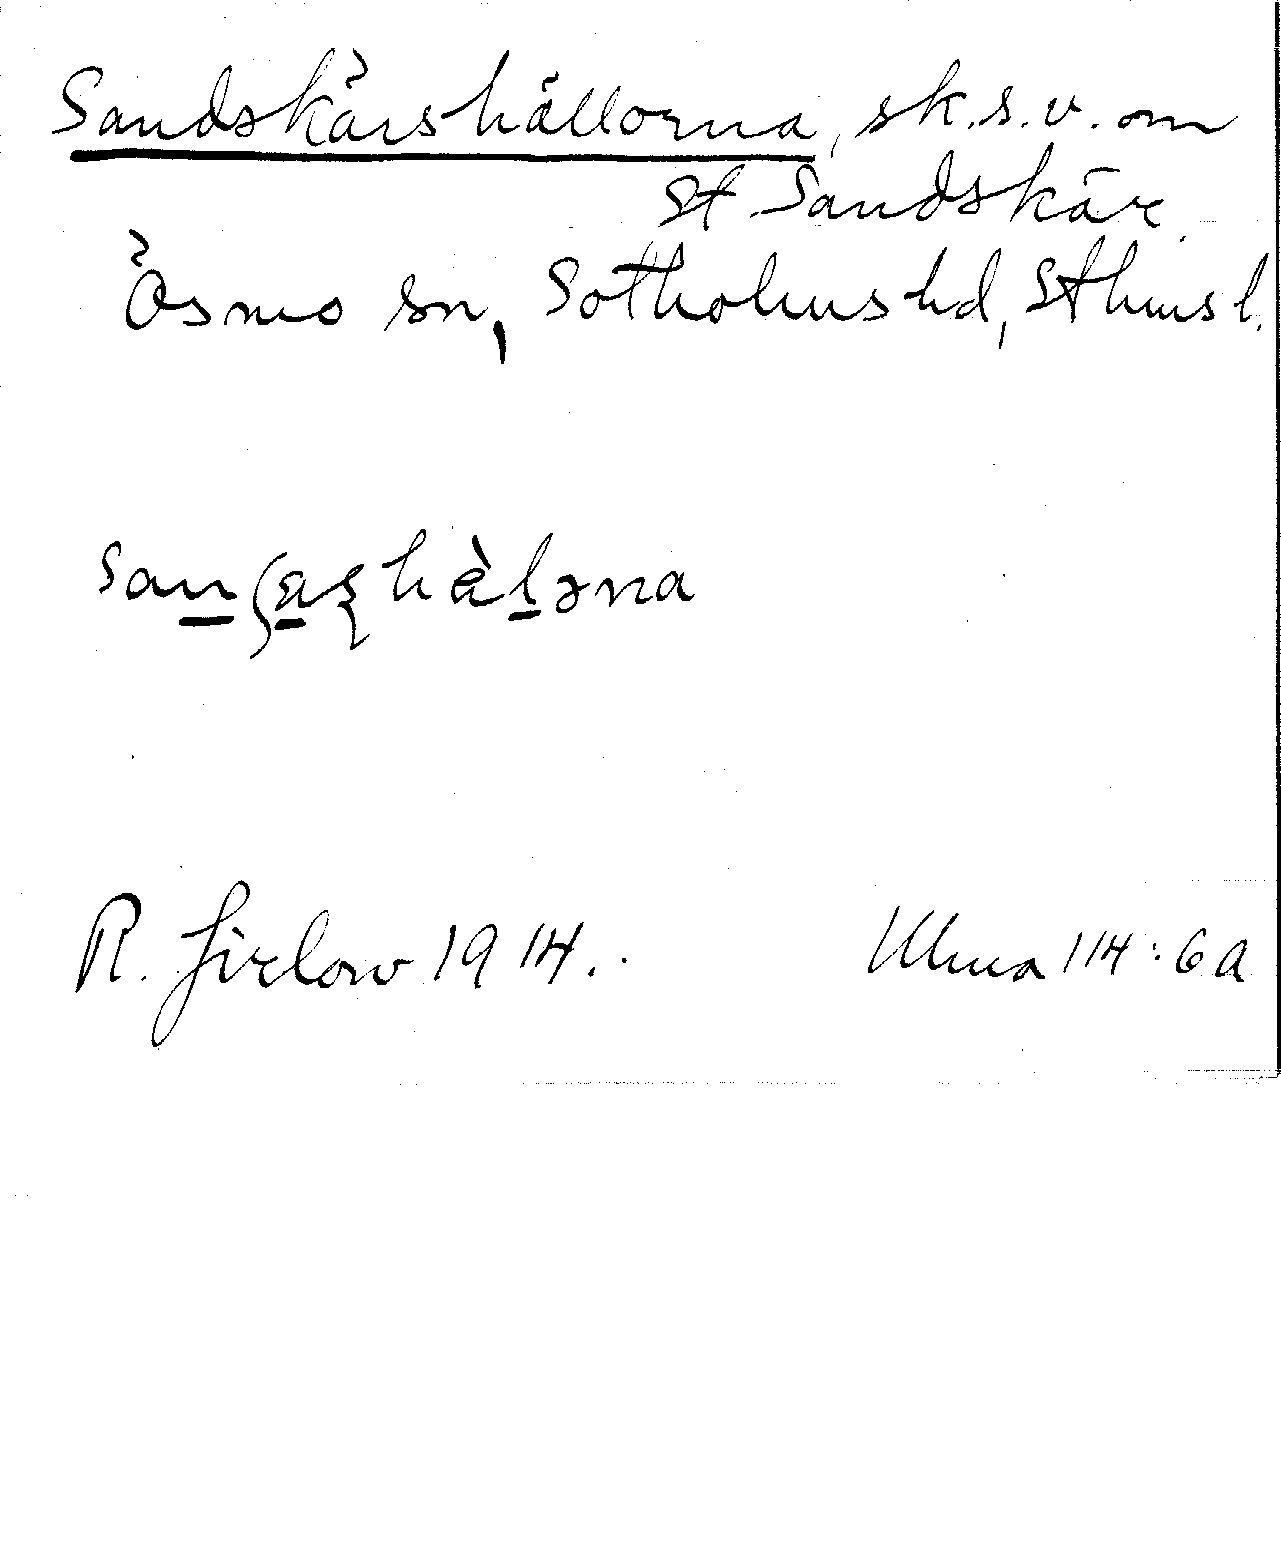 Sandskärshällorna, sk.s.v. om
St. Sandskär.
Ösmo sn, Sotholms hd, Sthms l.
R. Jirlow 1914.
Ulma 114:6a